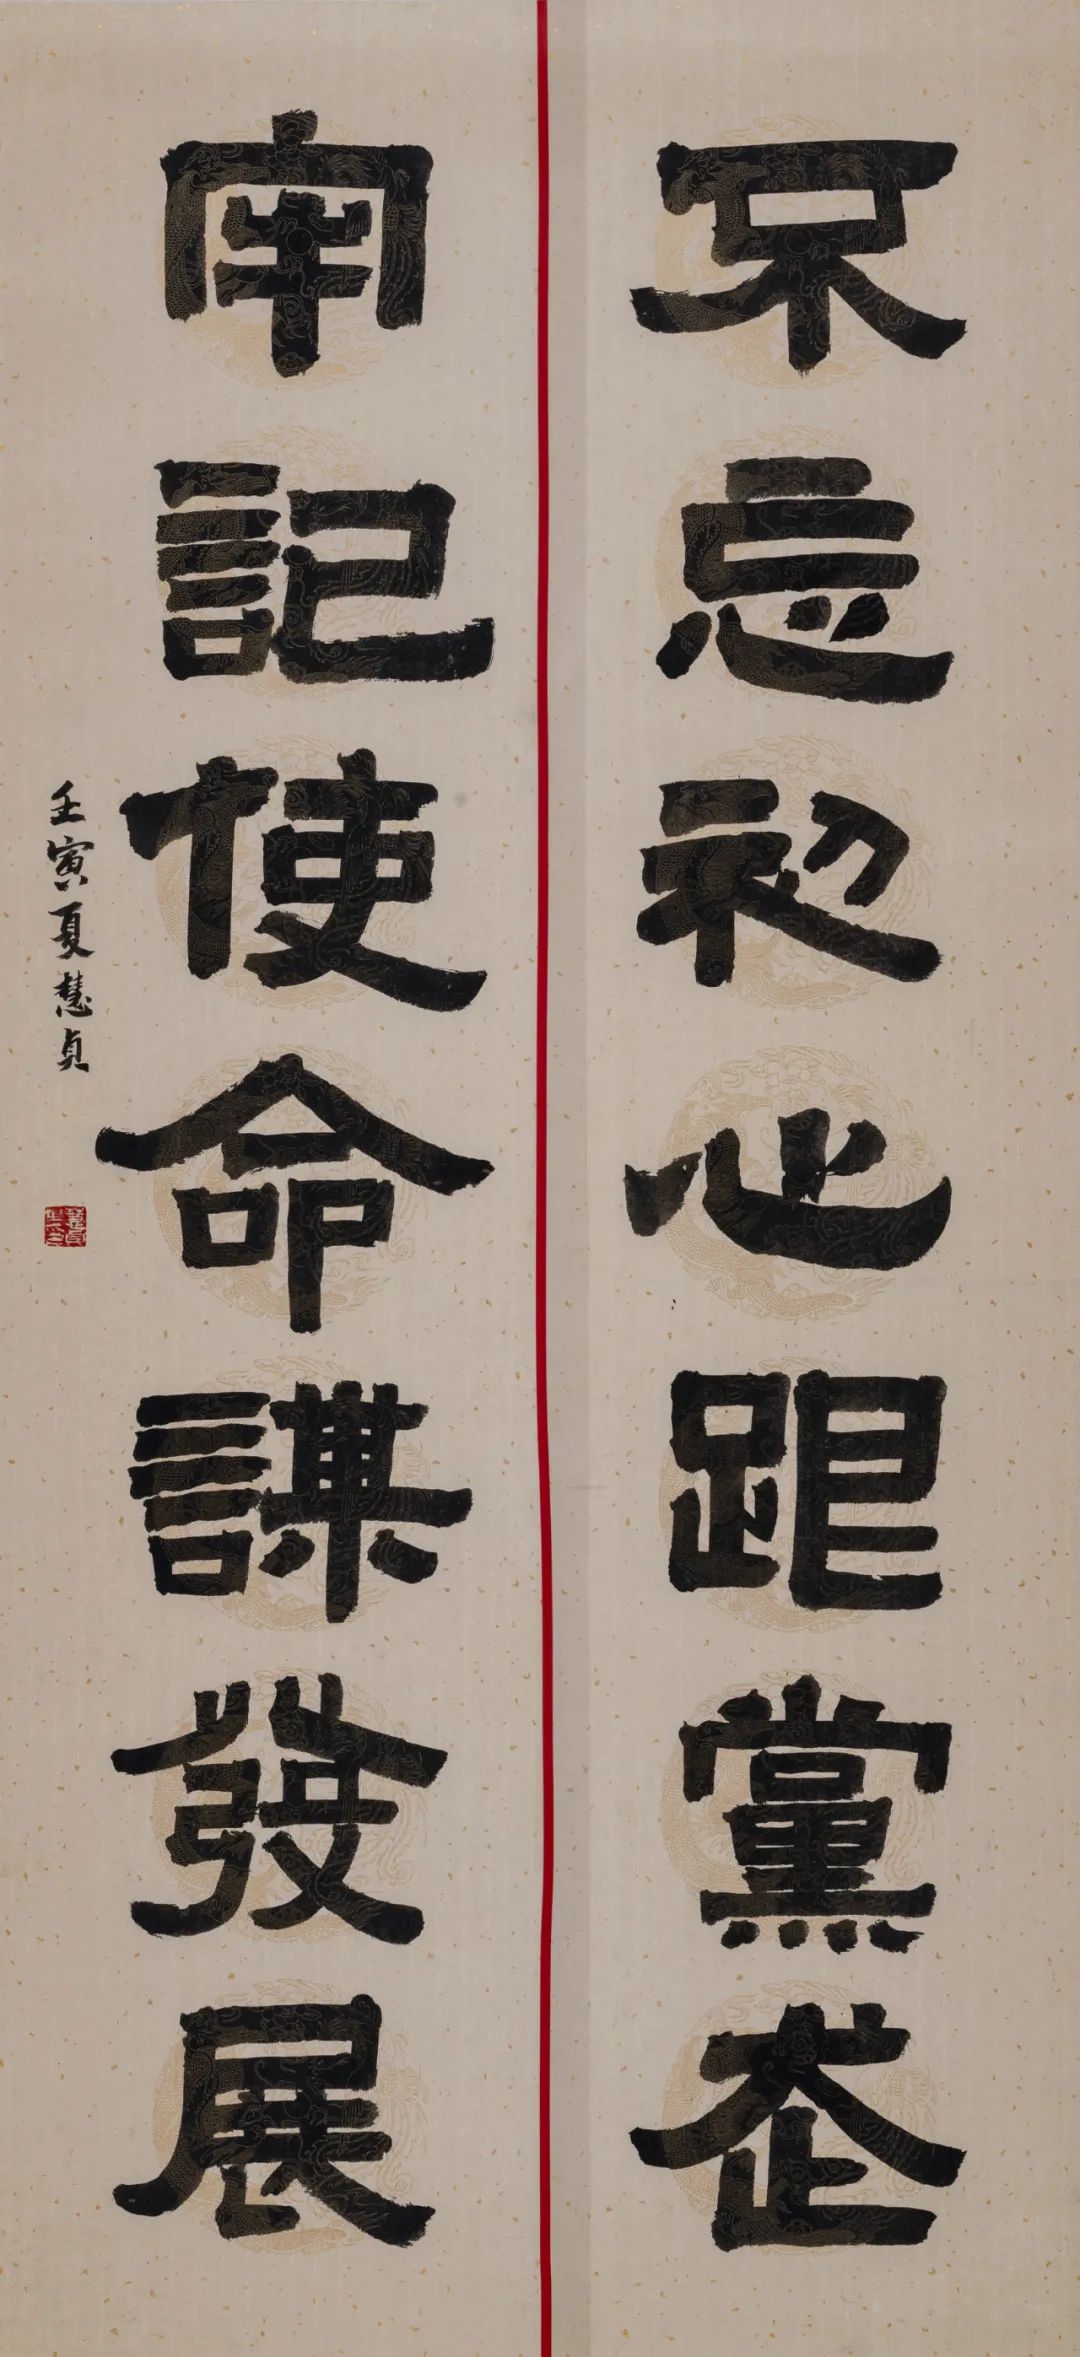 不忘初心跟黨走
牢記使命謀發展
壬寅夏慧貞
慧貞之印